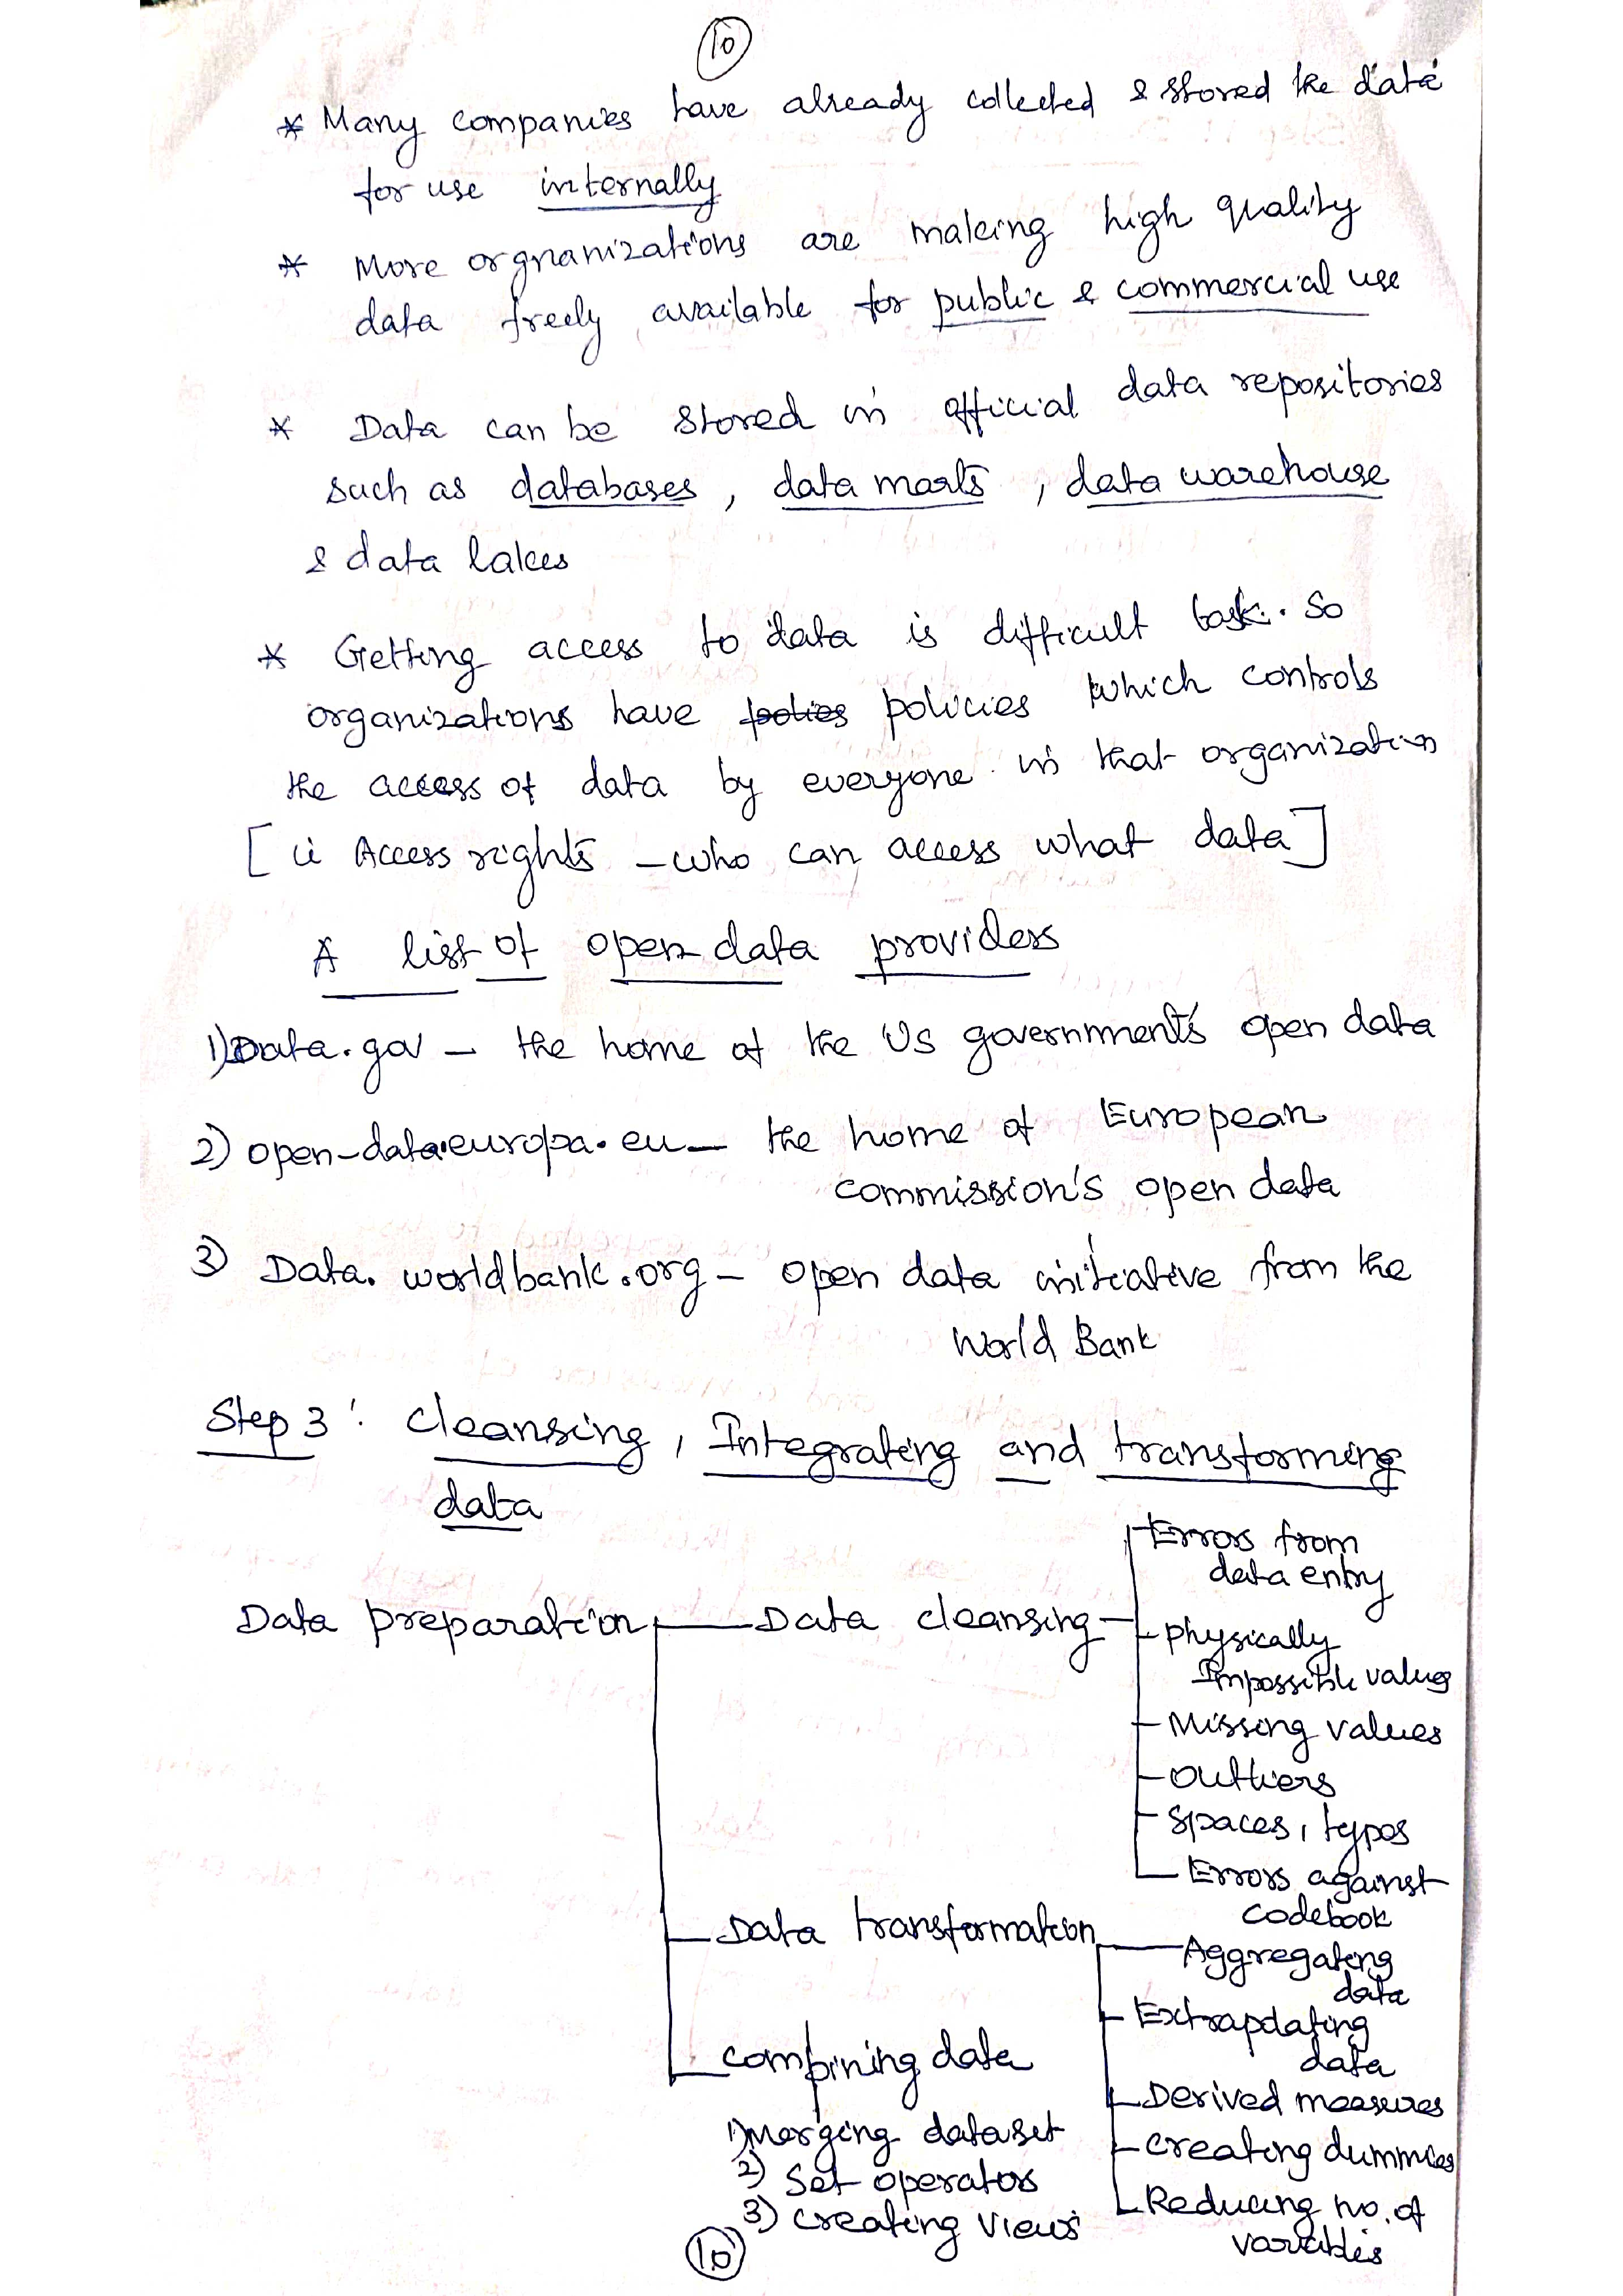 10
* Many companies have already collected & stored the data
for use internally
* More orgnanizations are making high quality
data freely available for public & commercial use
* Data can be stored in official data repositories
such as databases, data marts, data warehouse
& data lakes
* Getting access to data is difficult task. So
organizations have policies which controls
the access of data by everyone in that organization
[ie Access rights - who can access what data]
A list of open data providers
1) Data.gov - the home of the US government's open data
2) open-data.europa.eu - the home of European
commission's open data
3) Data.worldbank.org - open data initiative from the
World Bank
Step 3: Cleansing, Integrating and transforming
data
Data preparation
Data cleansing
Errors from
data entry
physically
Impossible values
Missing values
outliers
Spaces, typos
Errors against
codebook
Data transformation
Aggregating
data
Extrapolating
data
Derived measures
creating dummies
Reducing no. of
variables
combining data
1) Merging dataset
2) Set operators
3) creating views
10